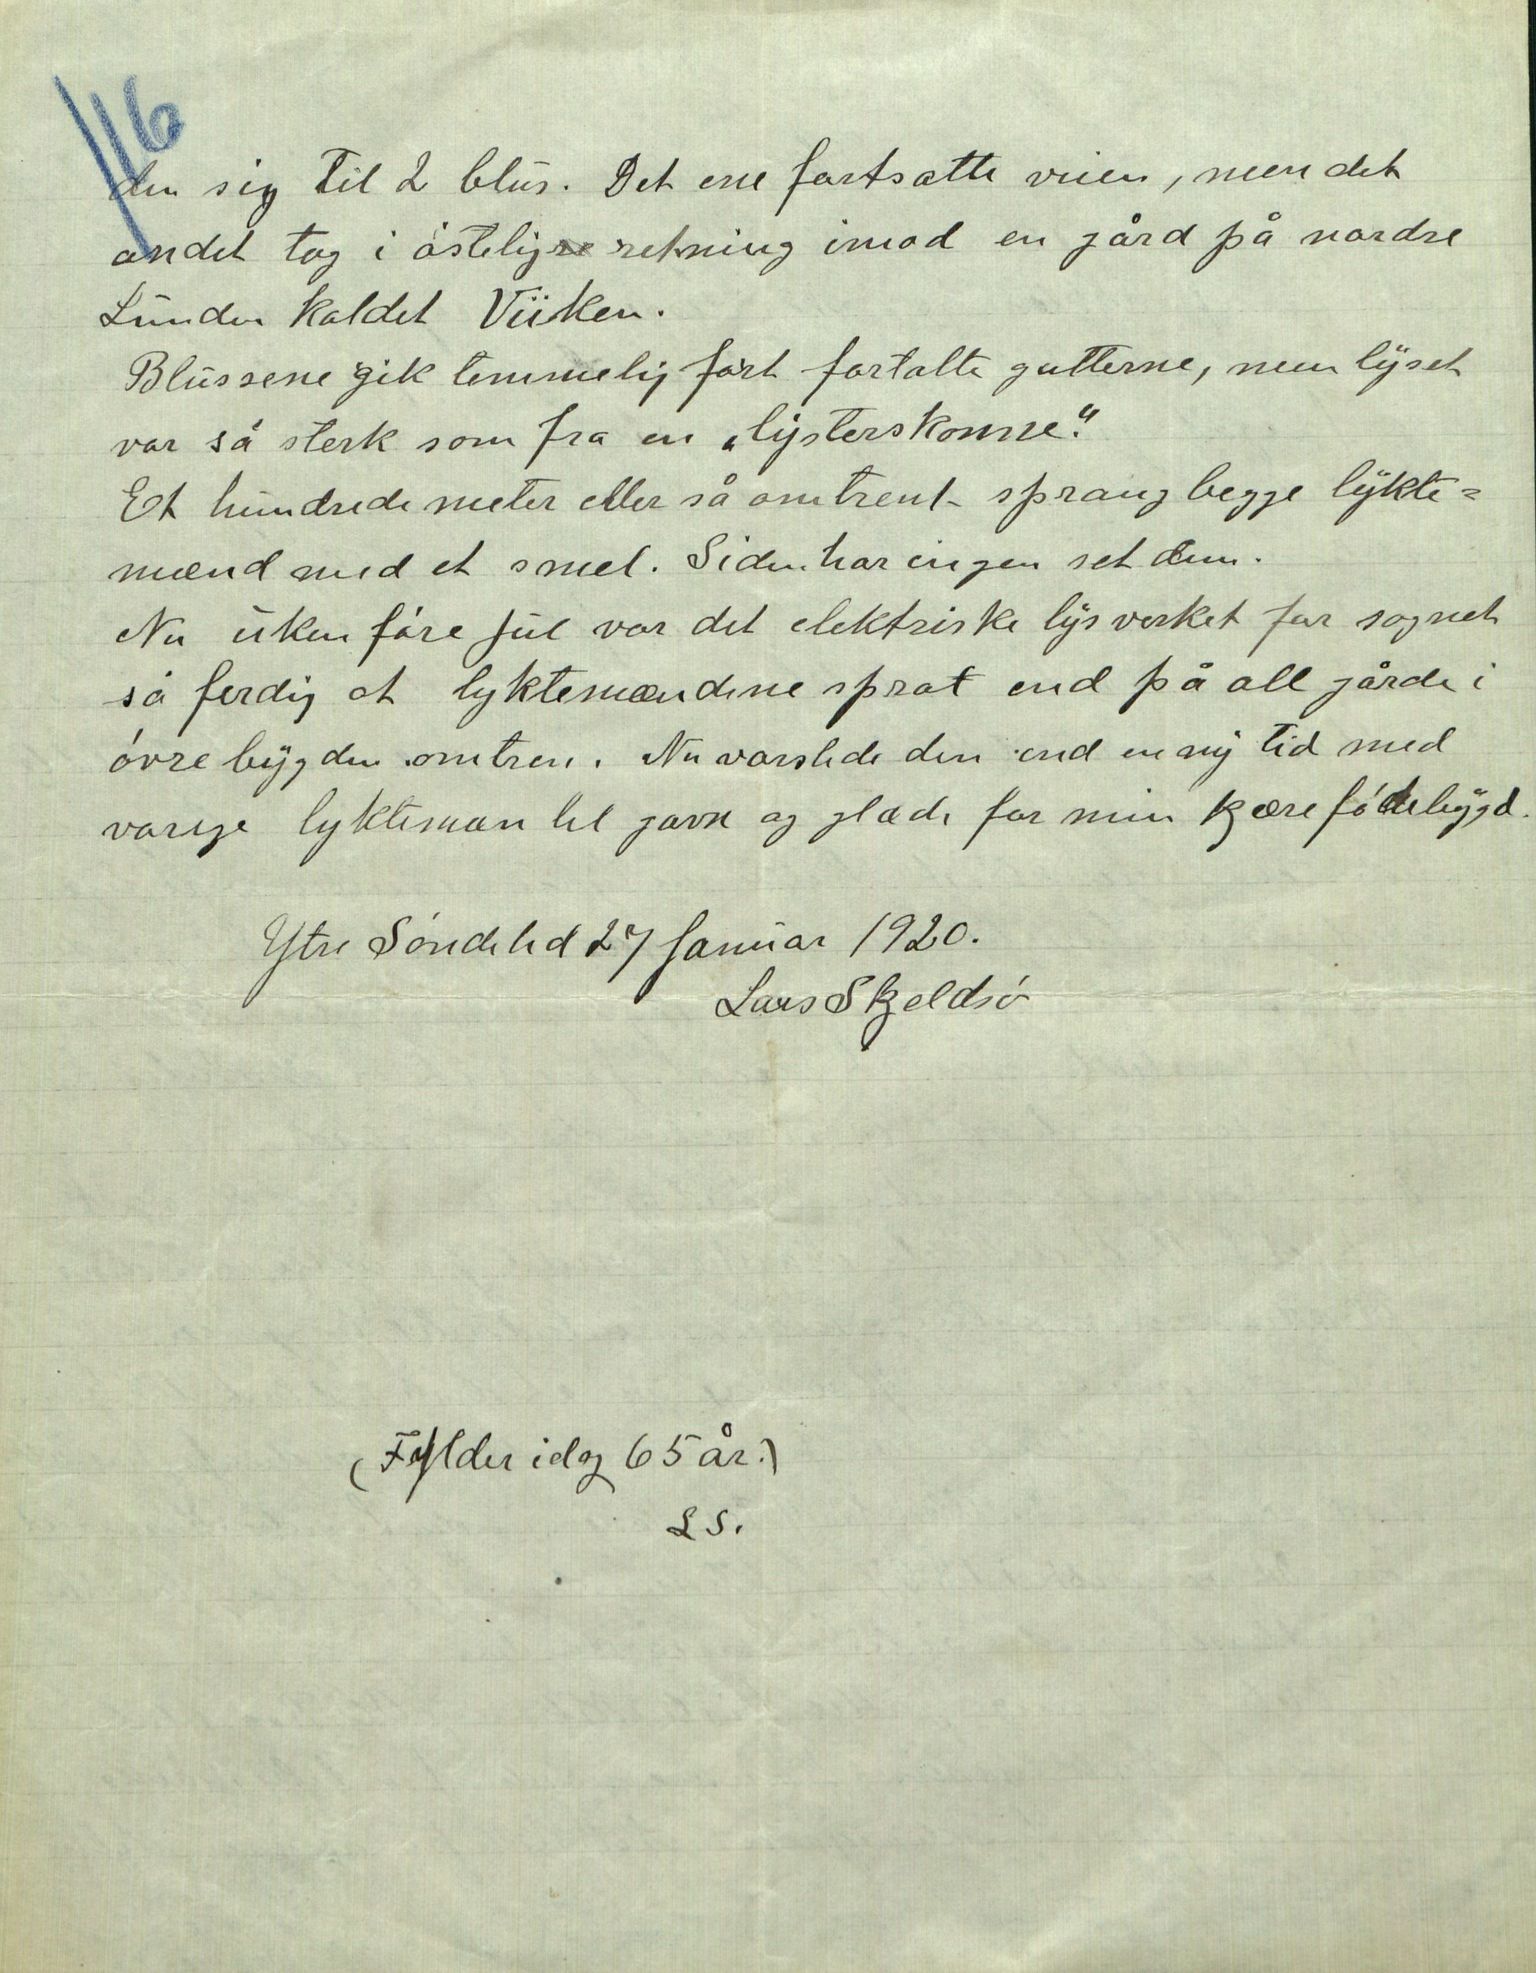 116
den sig til 2 blus. Det ene fortsatte veien, men det
andet tog i östelig retning imod en gård på nordre
Lunden kaldet Viiken.
Blussene gik temmelig fort fortalte gutterne, men lyset
var så sterk som fra en „lysterskonne“.
Et hundrede meter eller så omtrent sprang begge lykte=
mænd med et smel. Siden har ingen set dem.
Nu uken före jul var det elektriske lysverket for sognet
så ferdig at lyktemændene sprat end på all gårde i
övre bygden omtren. Nu varslede den end en ny tid med
varige lykteman til gavn og glæde for min kjære födebygd.
Ytre Söndeled 27 Januar 1920.
Lars Skjeldsö
(Fylder idag 65 år.)
L S.